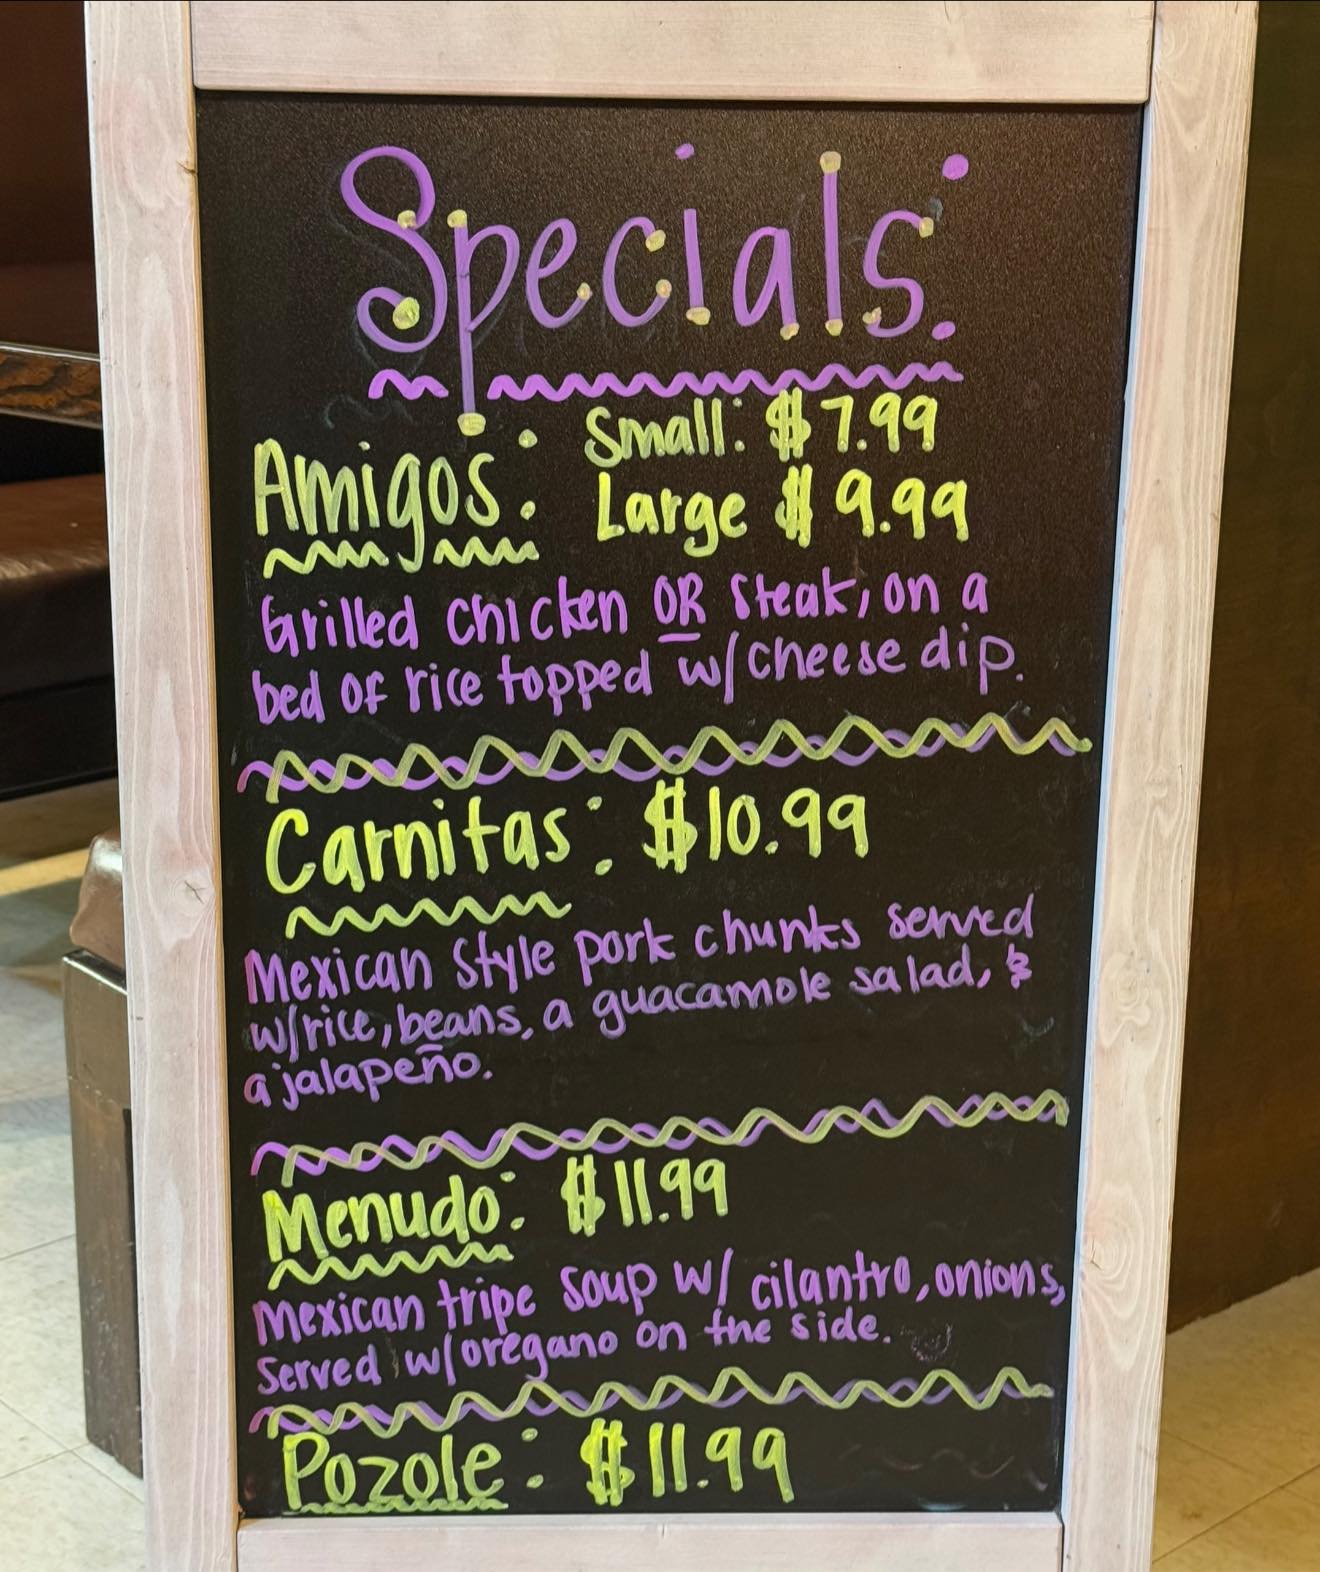 Specials:
Amigos: Small: $7.99
Large $9.99
Grilled chicken OR steak, on a
bed of rice topped w/cheese dip.
Carnitas: $10.99
Mexican Style pork chunks served
w/rice, beans, a guacamole salad, &
a jalapeño.
Menudo: $11.99
Mexican tripe soup w/ cilantro, onions,
Served w/oregano on the side.
Pozole: $11.99